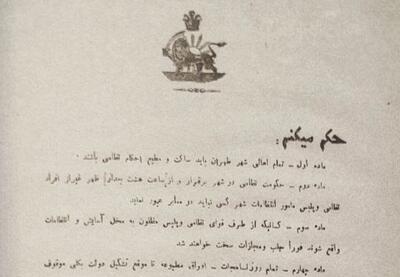 حکم میکنم:
ماده اول – تمام اهالی شهر طهران باید ساکت و مطیع احکام نظامی باشند.
ماده دوم – حکومت نظامی در شهر برقرار و از ساعت هشت بعداز ظهر غیر از افراد
نظامی و پلیس مامور انتظامات شهر کسی نباید در معابر عبور نماید
ماده سوم – کسانیکه از طرف قوای نظامی و پلیس مظنون به مخل آسایش و انتظامات
واقع شوند فوراً جلب و مجازات سخت خواهند شد
ماده چهارم – تمام روزنامجات – اوراق مطبوعه تا موقع تشکیل دولت بکلی موقوف